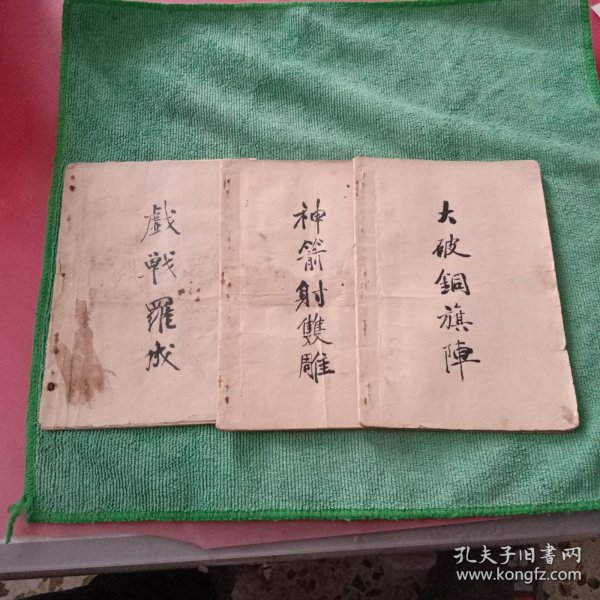 戯戦羅成
神箭射雙雕
大破銅旗陣
孔夫子旧书网
www.kongfz.com